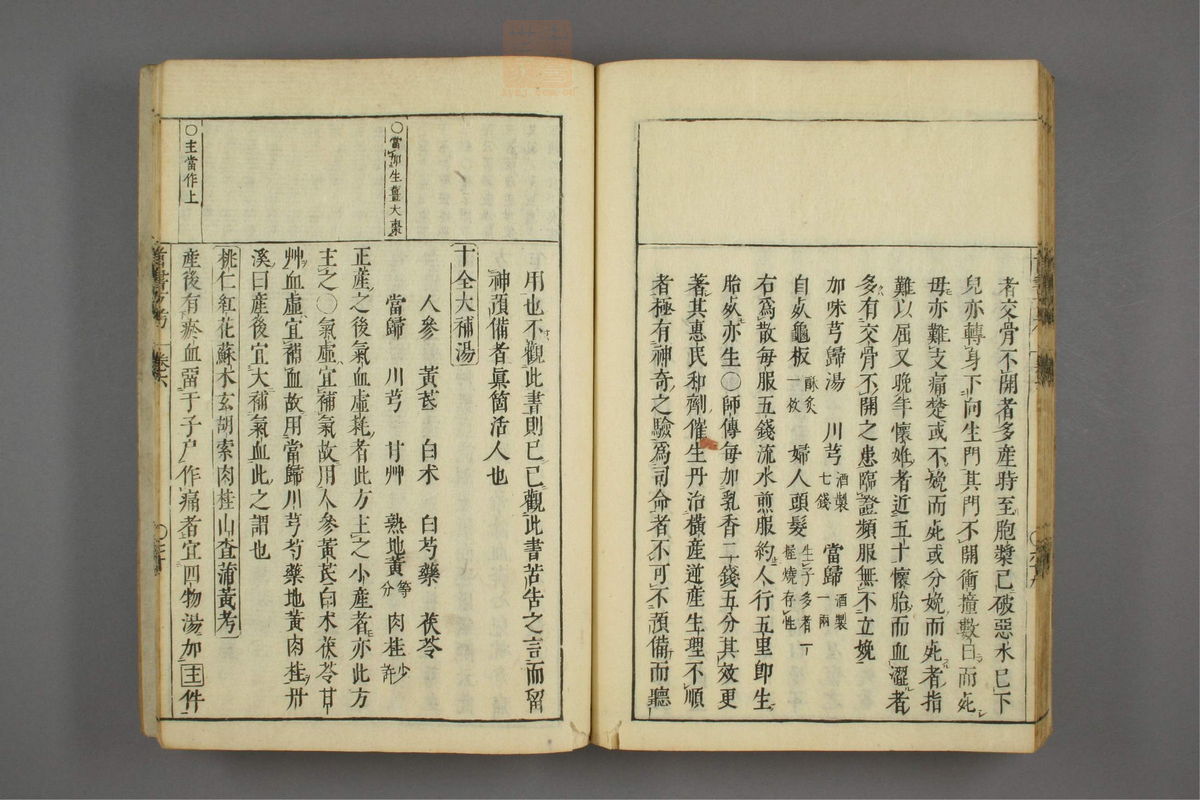 者交骨不開者多產時至胞漿已破惡水已下
兒亦轉身下向生門其門不開衝撞數日而死
母亦難支痛楚或不娩而死或分娩而死者指
難以屈又晚年懷娠者近五十懷胎而血澀者
多有交骨不開之患臨證頻服無不立娩
加味芎歸湯 川芎 酒製七錢 當歸 酒製一兩
自死龜板 酥炙一枚 婦人頭髮 生子多者一丫 燒存性
右爲散每服五錢流水煎服約人行五里卽生
胎死亦生○師傳每加乳香二錢五分其效更
著其惠民和劑催生丹治橫產逆產生理不順
者極有神奇之驗爲司命者不可不預備而聽
用也不觀此書則已已觀此書苦告之言而畱
神預備者眞箇活人也
○當加生薑大棗
十全大補湯
人參 黃芪 白术 白芍藥 茯苓
當歸 川芎 甘艸 熟地黃 等分 肉桂 少許
正產之後氣血虛耗者此方主之小產者亦此方
主之○氣虛宜補氣故用人參黃芪白术茯苓甘
艸血虛宜補血故用當歸川芎芍藥地黃肉桂丹
溪曰產後宜大補氣血此之謂也
桃仁紅花蘇木玄胡索肉桂山査蒲黃考
○主當作上
產後有瘀血畱于子戶作痛者宜四物湯加主件